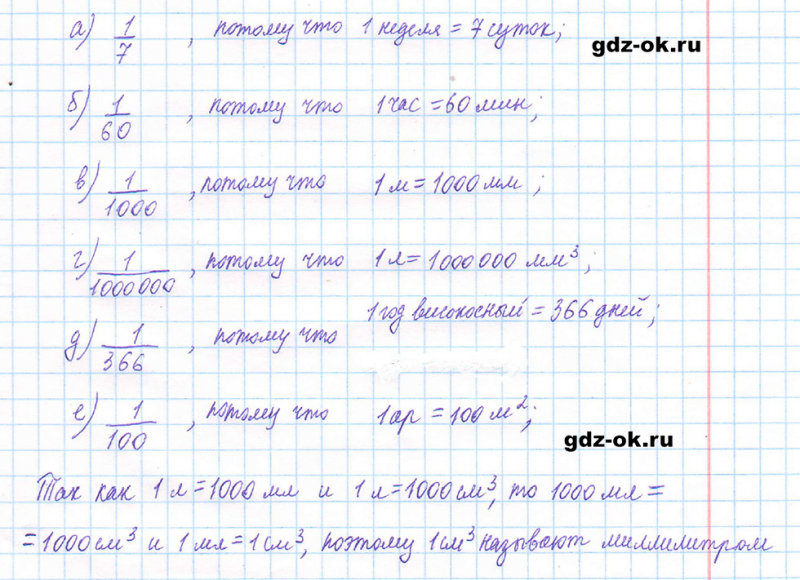 а) 1/7 , потому что 1 неделя = 7 суток;
gdz-ok.ru
б) 1/60 , потому что 1 час = 60 мин;
в) 1/1000 , потому что 1 м = 1000 мм ;
г) 1/1000000 , потому что 1 л = 1000 000 мм³;
1 год високосный = 366 дней;
д) 1/366 , потому что
е) 1/100 , потому что 1 ар = 100 м²;
gdz-ok.ru
Так как 1 л = 1000 мл и 1 л = 1000 см³, то 1000 мл =
= 1000 см³ и 1 мл = 1 см³, поэтому 1 см³ называют миллилитром